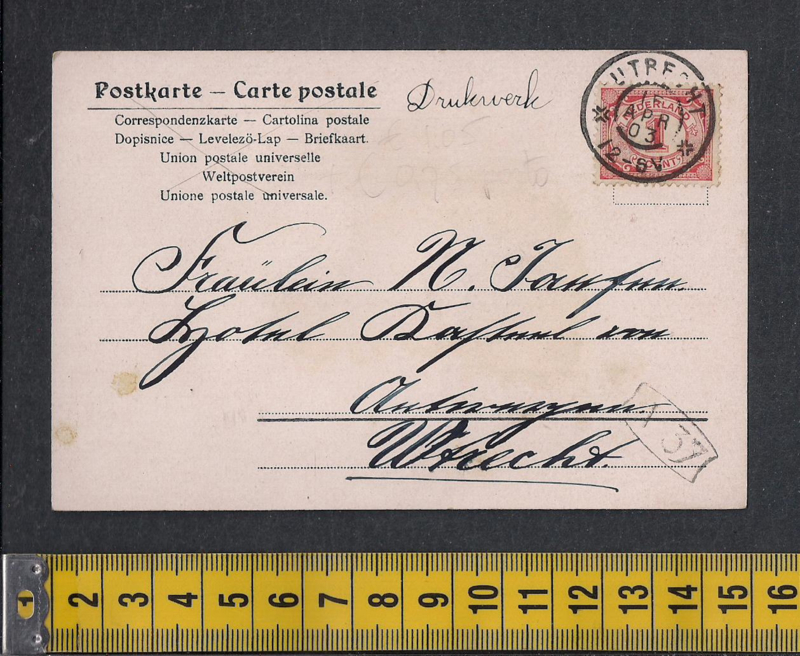 Postkarte – Carte postale
Correspondenzkarte — Cartolina postale
Dopisnice — Levelezö-Lap — Briefkaart.
Union postale universelle
Weltpostverein
Unione postale universale.
Drukwerk
UTRECHT
APR
03
12-6V
NEDERLAND
1
CENT
Fräulein N. Janssen
Hotel Kasteel van
Antwerpen.
Utrecht.
37
1 2 3 4 5 6 7 8 9 10 11 12 13 14 15 16